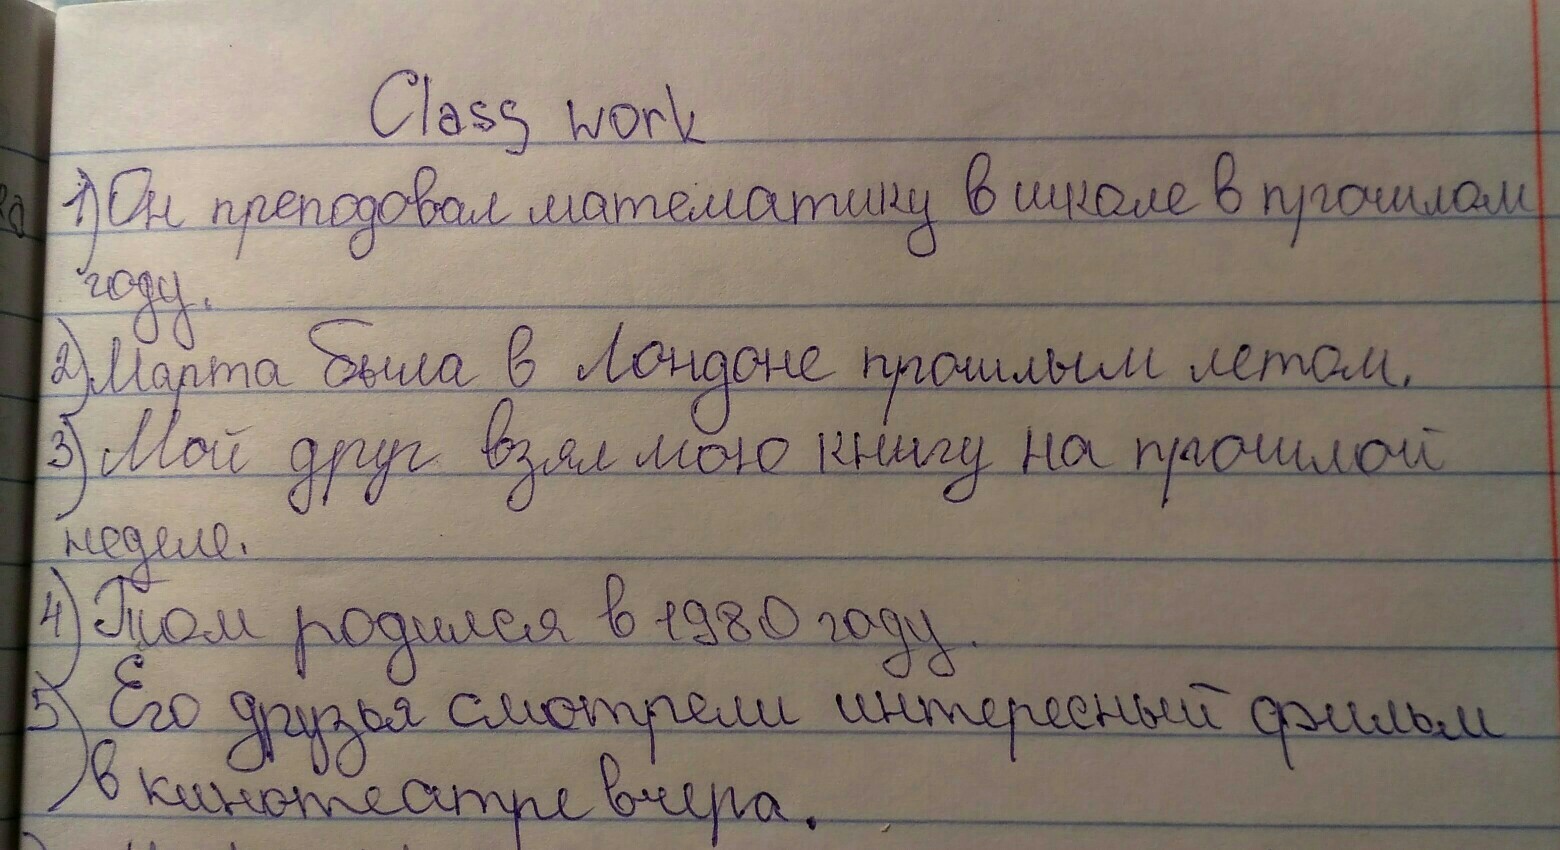 Class work
1) Он преподовал математику в школе в прошлом
году.
2) Марта была в Лондоне прошлым летом.
3) Мой друг взял мою книгу на прошлой
неделе.
4) Том родился в 1980 году.
5) Его друзья смотрели интересный фильм
в кинотеатре вчера.